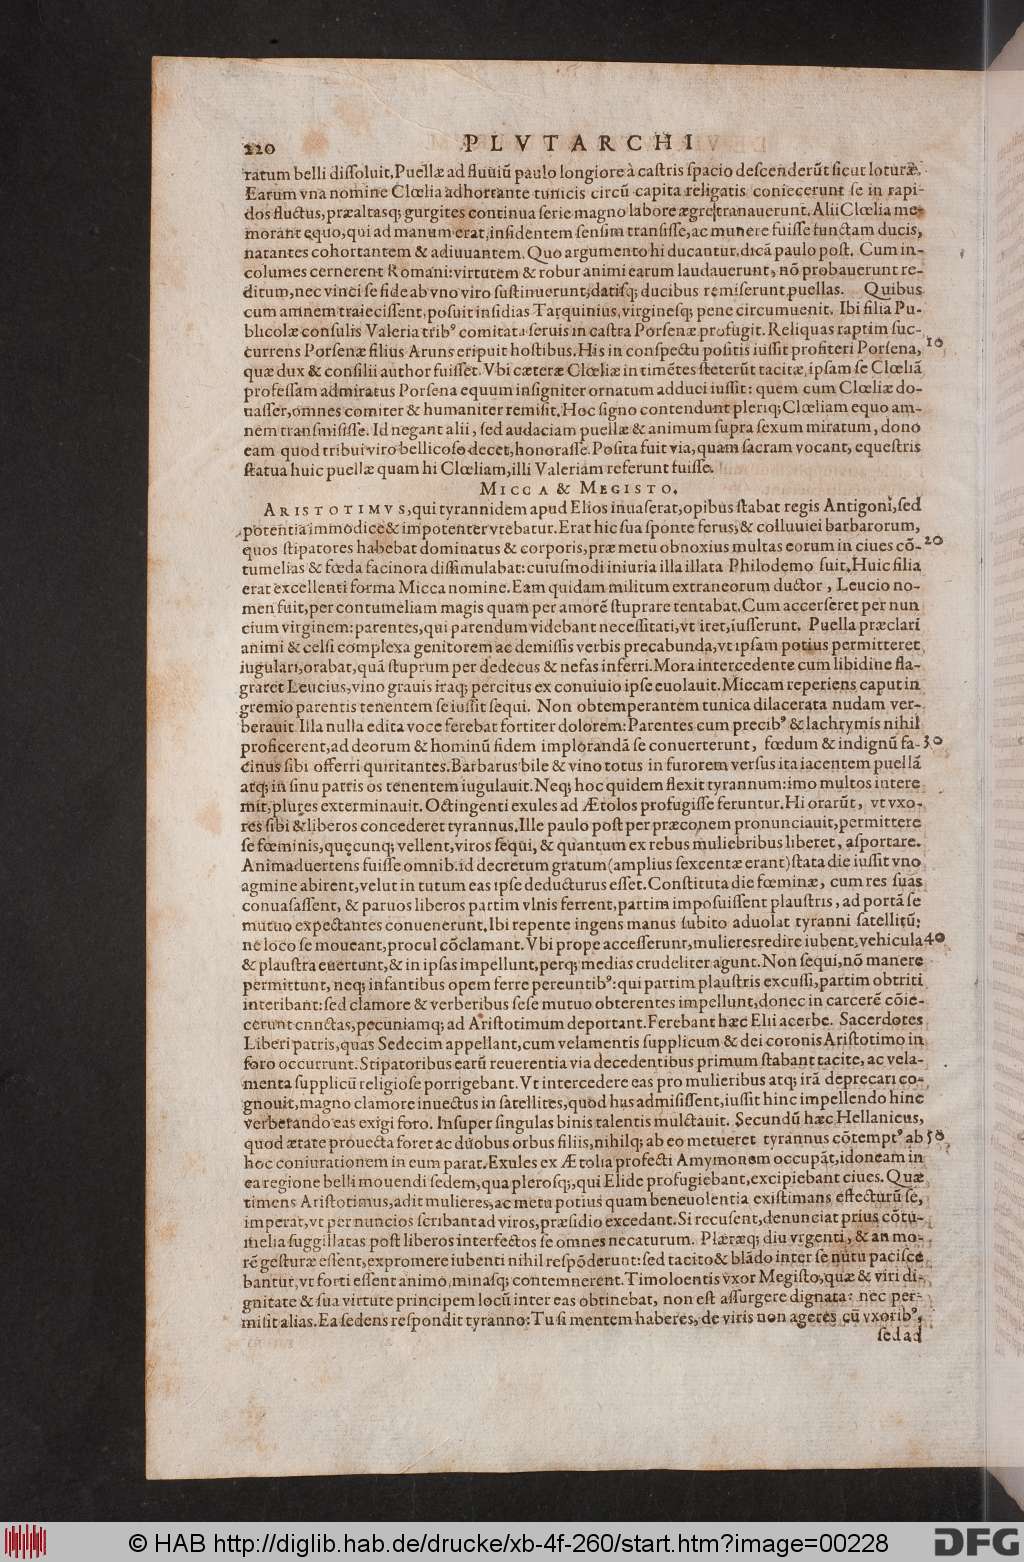 220 PLVTARCHI
ratum belli dissoluit. Puellæ ad fluuiũ paulo longiore à castris spacio descenderũt sicut loturæ.
Earum vna nomine Clœlia adhortante tunicis circũ capita religatis coniecerunt se in rapi-
dos fluctus, præaltasq; gurgites continua serie magno labore ægre tranauerunt. Alii Clœlia me-
morant equo, qui ad manum erat, insidentem sensim transisse, ac munere fuisse functam ducis,
natantes cohortantem & adiuuantem. Quo argumento hi ducantur, dicã paulo post. Cum in-
columes cernerent Romani: virtutem & robur animi earum laudauerunt, nõ probauerunt re-
ditum, nec vinci se fide ab vno viro sustinuerunt, datisq; ducibus remiserunt puellas. Quibus
cum amnem traiecissent, posuit insidias Tarquinius, virginesq; pene circumuenit. Ibi filia Pu-
blicolæ consulis Valeria tribꝰ comitata seruis in castra Porsenæ profugit. Reliquas raptim suc-
currens Porsenæ filius Aruns eripuit hostibus. His in conspectu positis iussit profiteri Porsena, 10
quæ dux & consilii author fuisset. Vbi cæteræ Clœliæ in timẽtes steterũt tacitæ, ipsam se Clœliã
professam admiratus Porsena equum insigniter ornatum adduci iussit: quem cum Clœliæ do-
nasset, omnes comiter & humaniter remisit. Hoc signo contendunt pleriq; Clœliam equo am-
nem transmisisse. Id negant alii, sed audaciam puellæ & animum supra sexum miratum, dono
eam quod tribui viro bellicoso decet, honorasse. Posita fuit via, quam sacram vocant, equestris
statua huic puellæ quam hi Clœliam, illi Valeriam referunt fuisse.
MICCA & MEGISTO.
ARISTOTIMVS, qui tyrannidem apud Elios inuaserat, opibus stabat regis Antigoni, sed
potentia immodice & impotenter vtebatur. Erat hic sua sponte ferus, & colluuiei barbarorum,
quos stipatores habebat dominatus & corporis, præ metu obnoxius multas eorum in ciues cõ- 20
tumelias & fœda facinora dissimulabat: cuiusmodi iniuria illa illata Philodemo fuit. Huic filia
erat excellenti forma Micca nomine. Eam quidam militum extraneorum ductor, Leucio no-
men fuit, per contumeliam magis quam per amorẽ stuprare tentabat. Cum accerseret per nun
cium virginem: parentes, qui parendum videbant necessitati, vt iret, iusserunt. Puella præclari
animi & celsi complexa genitorem ac demissis verbis precabunda, vt ipsam potius permitteret
iugulari, orabat, quã stuprum per dedecus & nefas inferri. Mora intercedente cum libidine fla-
graret Leucius, vino grauis iraq; percitus ex conuiuio ipse euolauit. Miccam reperiens caput in
gremio parentis tenentem se iussit sequi. Non obtemperantem tunica dilacerata nudam ver-
berauit. Illa nulla edita voce ferebat fortiter dolorem: Parentes cum precibꝰ & lachrymis nihil
proficerent, ad deorum & hominũ fidem implorandã se conuerterunt, fœdum & indignũ fa- 30
cinus sibi offerri quiritantes. Barbarus bile & vino totus in furorem versus ita iacentem puellã
atq; in sinu patris os tenentem iugulauit. Neq; hoc quidem flexit tyrannum: imo multos intere
mit, plures exterminauit. Octingenti exules ad Ætolos profugisse feruntur. Hi orarũt, vt vxo-
res sibi & liberos concederet tyrannus. Ille paulo post per præconem pronunciauit, permittere
se fœminis, quęcunq; vellent, viros sequi, & quantum ex rebus muliebribus liberet, asportare.
Animaduertens fuisse omnib. id decretum gratum (amplius sexcentæ erant) stata die iussit vno
agmine abirent, velut in tutum eas ipse deducturus esset. Constituta die fœminæ, cum res suas
conuasassent, & paruos liberos partim vlnis ferrent, partim imposuissent plaustris, ad portã se
mutuo expectantes conuenerunt. Ibi repente ingens manus subito aduolat tyranni satellitũ:
ne loco se moueant, procul cõclamant. Vbi prope accesserunt, mulieres redire iubent, vehicula 40
& plaustra euertunt, & in ipsas impellunt, perq; medias crudeliter agunt. Non sequi, nõ manere
permittunt, neq; infantibus opem ferre pereuntibꝰ: qui partim plaustris excussi, partim obtriti
interibant: sed clamore & verberibus sese mutuo obterentes impellunt, donec in carcerẽ cõie-
cerunt cnnctas, pecuniamq; ad Aristotimum deportant. Ferebant hæc Elii acerbe. Sacerdotes
Liberi patris, quas Sedecim appellant, cum velamentis supplicum & dei coronis Aristotimo in
foro occurrunt. Stipatoribus earũ reuerentia via decedentibus primum stabant tacite, ac vela-
menta supplicũ religiose porrigebant. Vt intercedere eas pro mulieribus atq; irã deprecari co-
gnouit, magno clamore inuectus in satellites, quod has admisissent, iussit hinc impellendo hinc
verberando eas exigi foro. Insuper singulas binis talentis mulctauit. Secundũ hæc Hellanicus,
quod ætate prouecta foret ac duobus orbus filiis, nihilq; ab eo metueret tyrannus cõtemptꝰ ab 50
hoc coniurationem in eum parat. Exules ex Ætolia profecti Amymonem occupãt, idoneam in
ea regione belli mouendi sedem, qua plerosq;, qui Elide profugiebant, excipiebant ciues. Quæ
timens Aristotimus, adit mulieres, ac metu potius quam beneuolentia existimans effecturũ se,
imperat, vt per nuncios scribant ad viros, præsidio excedant. Si recusent, denunciat prius cõtu-
melia suggillatas post liberos interfectos se omnes necaturum. Plæræq; diu vrgenti, & an mo-
rẽ gesturæ essent, expromere iubenti nihil respõderunt: sed tacito & blãdo inter se nutu pacisce
bantur, vt forti essent animo, minasq; contemnerent. Timoloentis vxor Megisto, quæ & viri di-
gnitate & sua virtute principem locũ inter eas obtinebat, non est assurgere dignata: nec per-
misit alias. Ea sedens respondit tyranno: Tu si mentem haberes, de viris non ageres cũ vxoribꝰ,
sed ad
© HAB http://diglib.hab.de/drucke/xb-4f-260/start.htm?image=00228
DFG